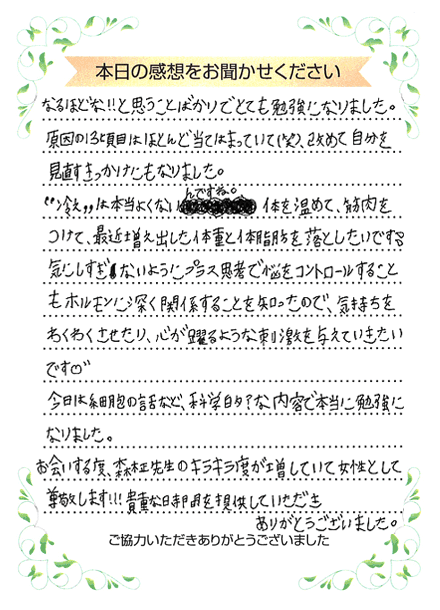 本日の感想をお聞かせください
なるほどな!!と思うことばかりでとても勉強になりました。
原因の135項目はほとんど当てはまっていて(笑)、改めて自分を
見直すきっかけにもなりました。
"冷え"は本当よくないんですね。体を温めて、筋肉を
つけて、最近増え出した体重と体脂肪を落としたいです
気にしすぎないようにプラス思考で脳をコントロールすること
もホルモンに深く関係することを知ったので、気持ちを
わくわくさせたり、心が躍るような刺激を与えていきたい
です
今日は細胞の話など、科学的?な内容で本当に勉強に
なりました。
お会いする度、先生のキラキラ度が増していて女性として
尊敬します!!!貴重な時間を提供していただき
ありがとうございました。
ご協力いただきありがとうございました